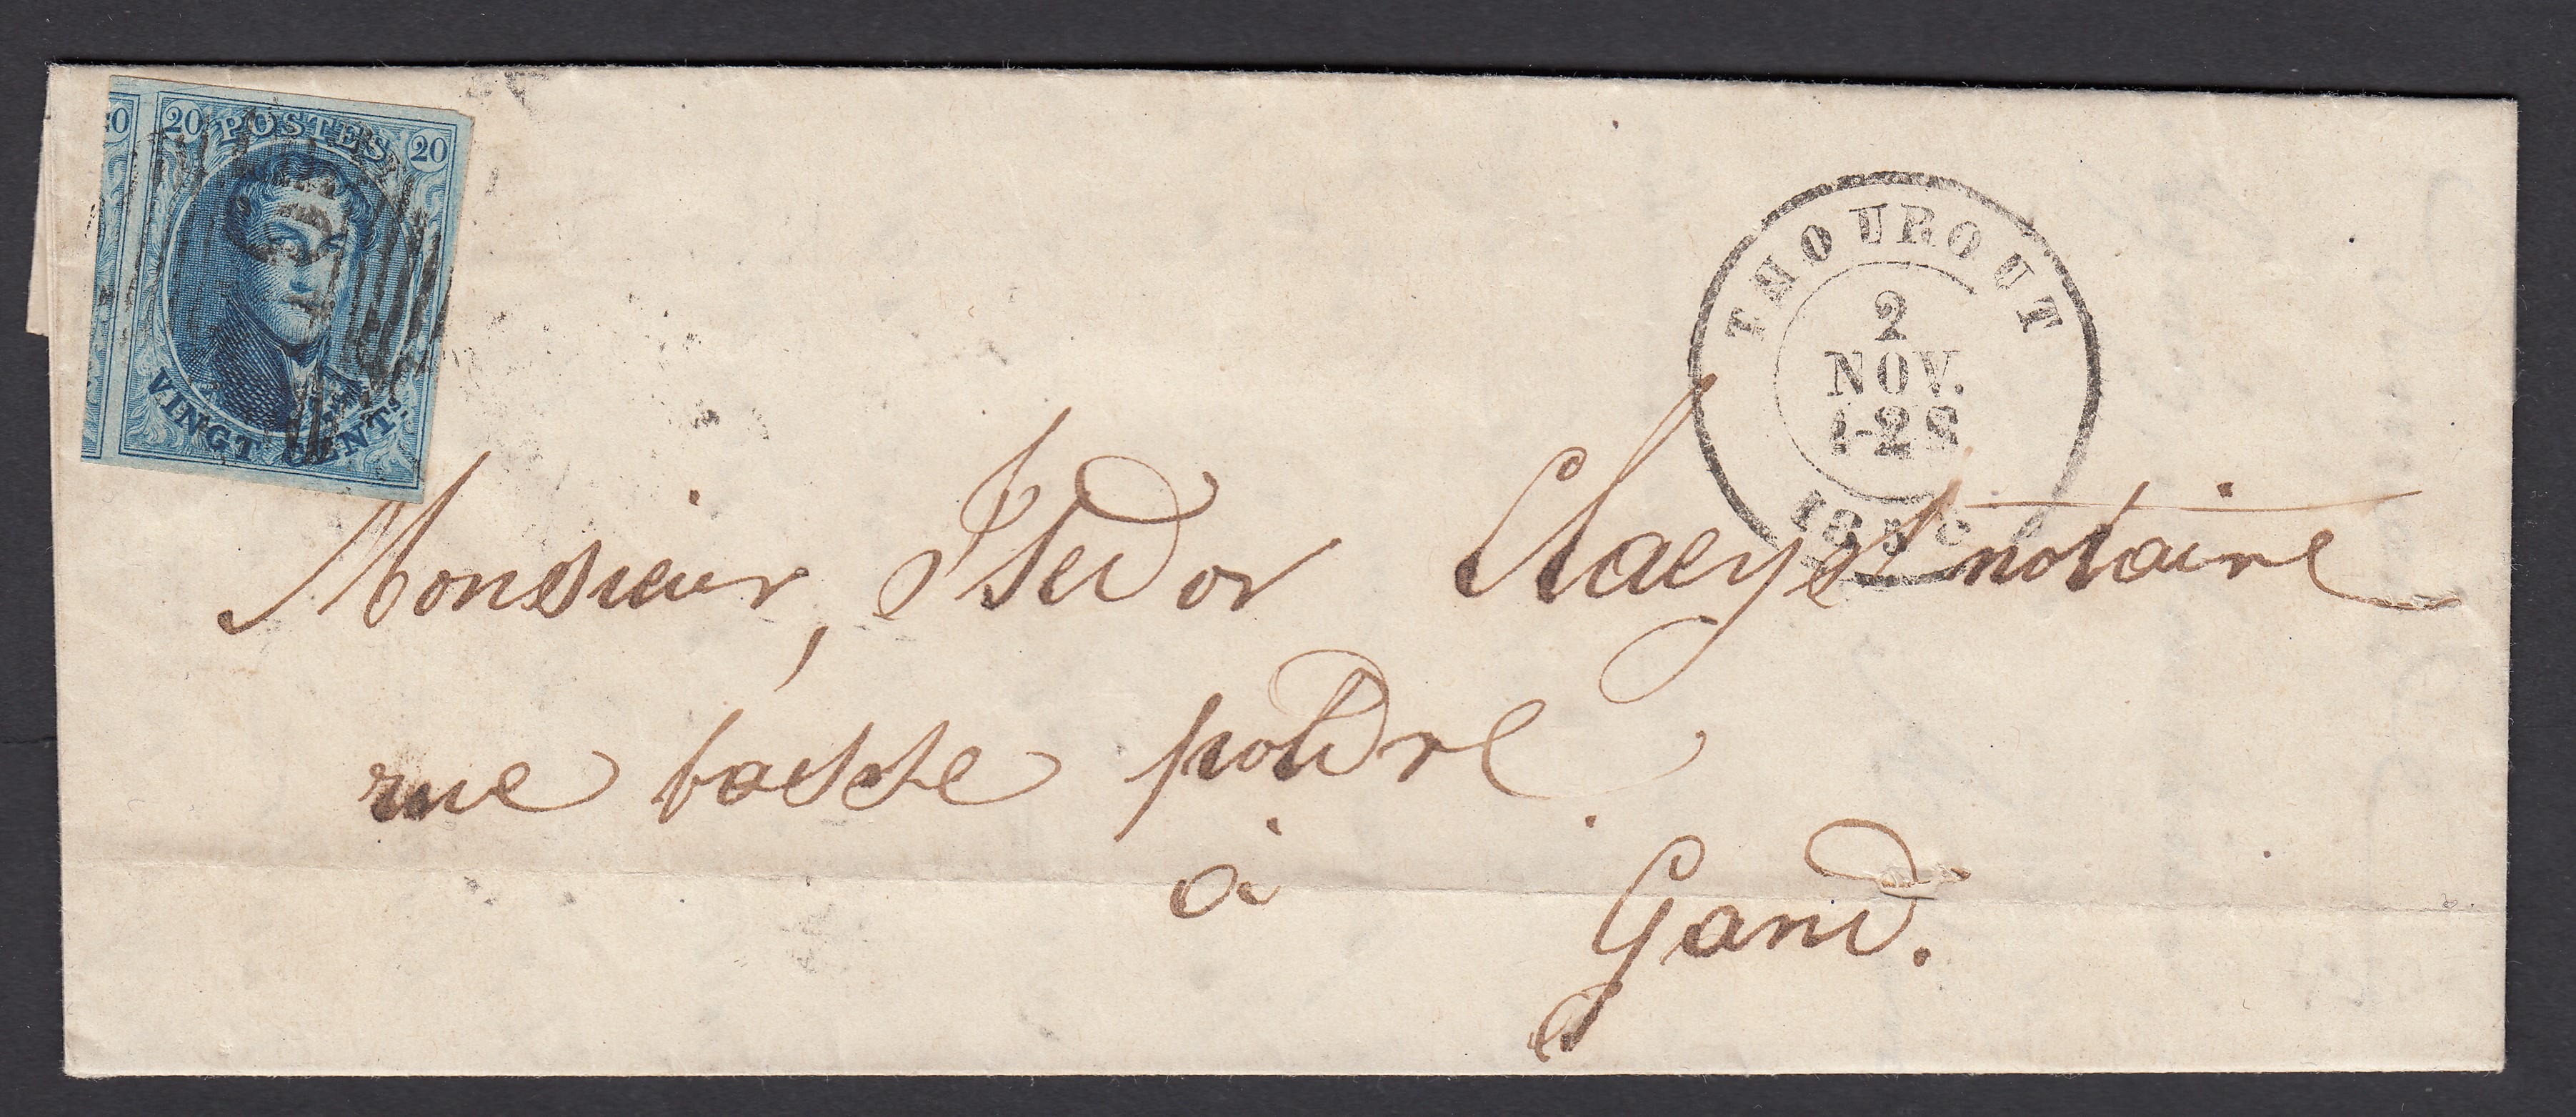 20 POSTES 20
VINGT CENTS.
THOUROUT
2
NOV.
Monsieur, Isidor Claeys notaire
rue basse
à
Gand.